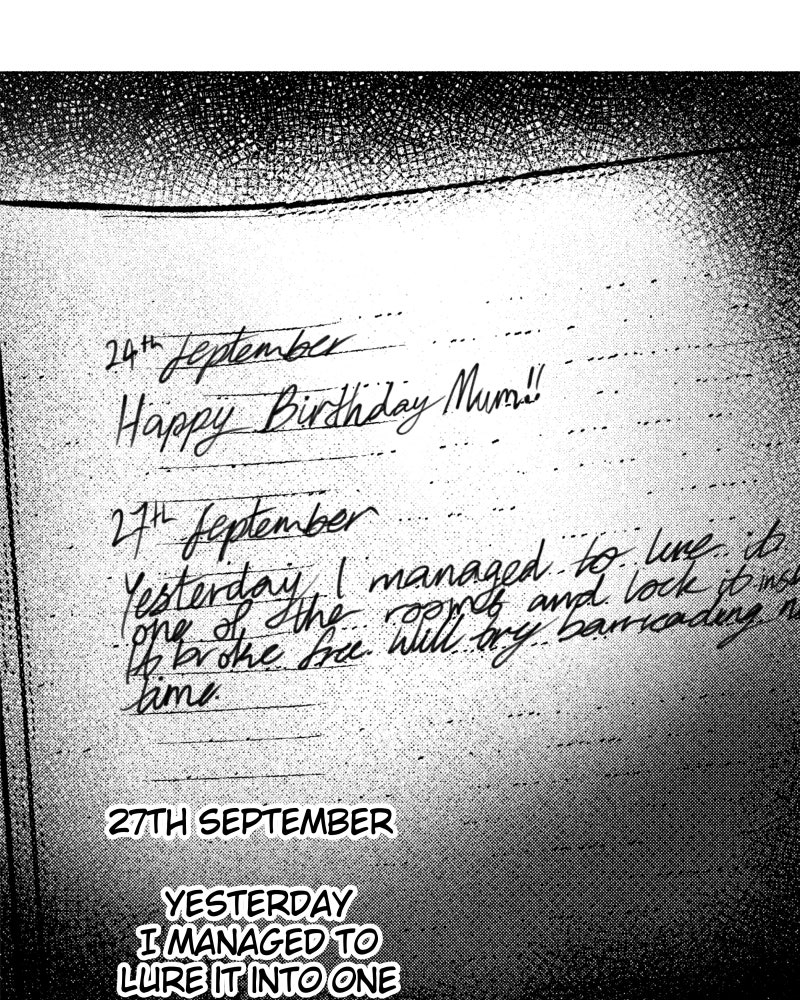 24th September
Happy Birthday Mum!!
27th September
Yesterday I managed to lure it
one of the rooms and lock it
It broke free. Will try barricading
time.
27TH SEPTEMBER
YESTERDAY
I MANAGED TO
LURE IT INTO ONE